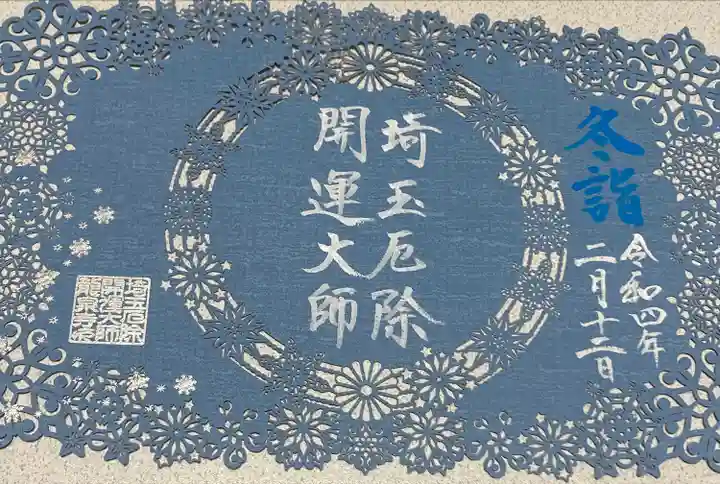 冬詣
令和四年
二月十二日
埼玉厄除
開運大師
埼玉厄除
開運大師
龍泉寺印